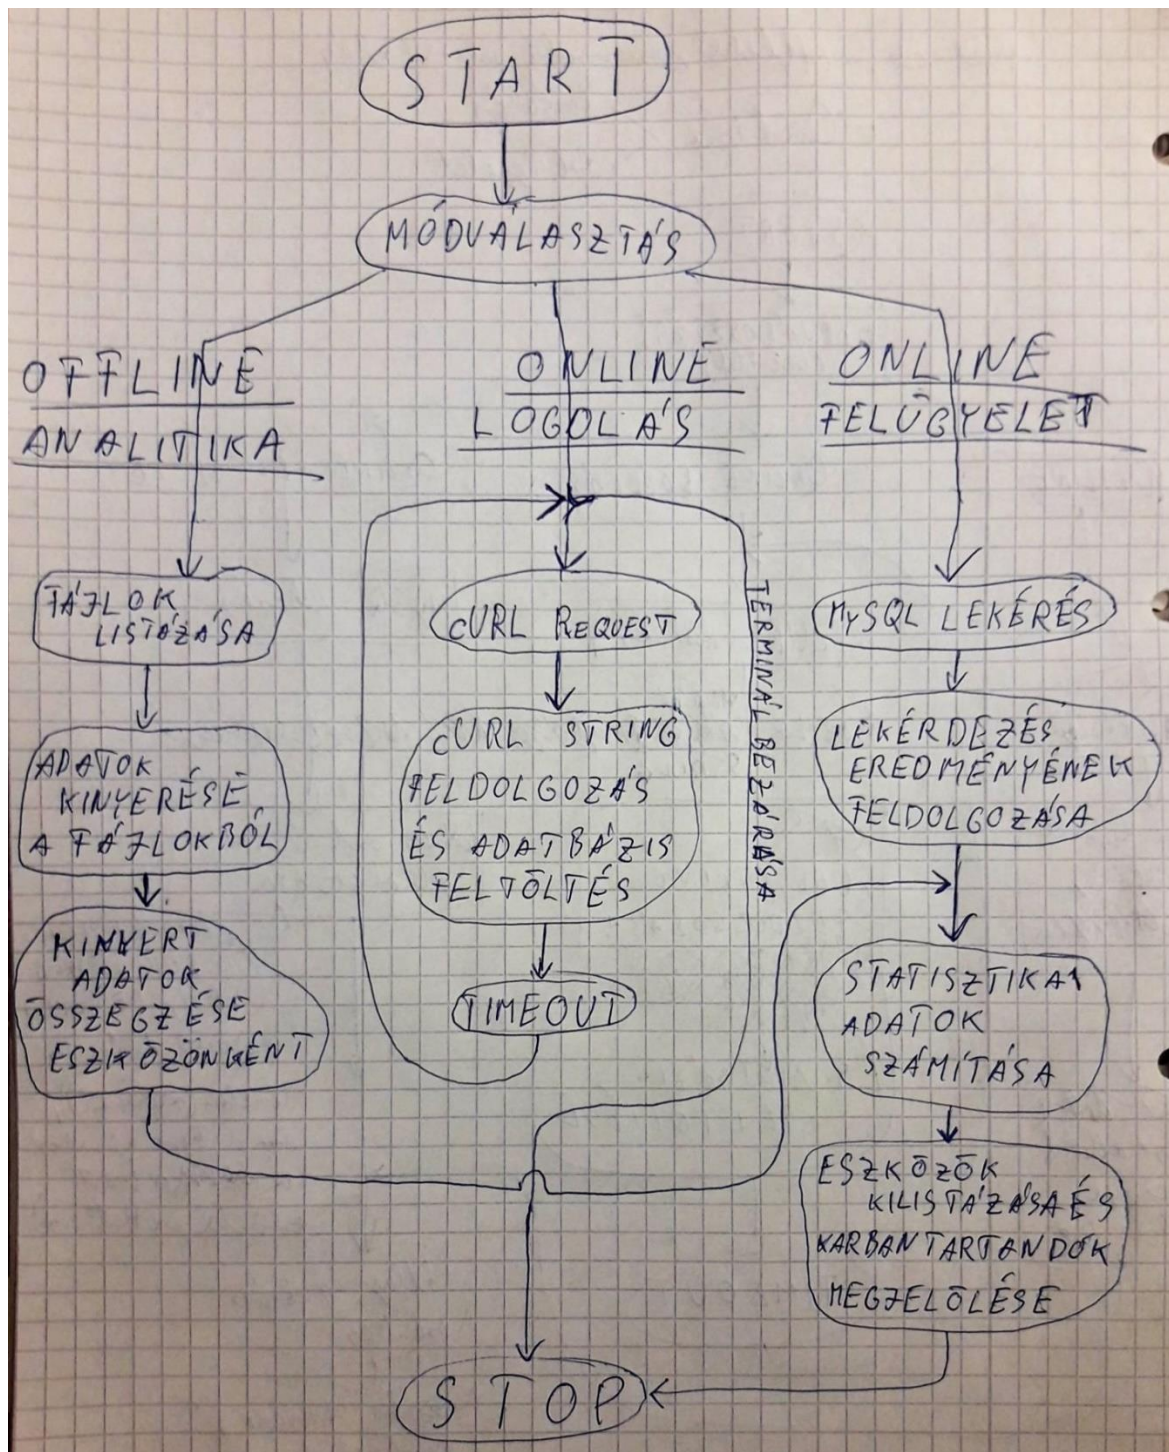 START
MÓDVÁLASZTÁS
OFFLINE
ANALITIKA
FÁJLOK
LISTÁZÁSA
ADATOK
KINYERÉSE
A FÁJLOKBÓL
KINYERT
ADATOK
ÖSSZEGZÉSE
ESZKÖZÖNKÉNT
ONLINE
LOGOLÁS
cURL REQUEST
cURL STRING
FELDOLGOZÁS
ÉS ADATBÁZIS
FELTÖLTÉS
TIMEOUT
TERMINÁL BEZÁRÁSA
ONLINE
FELÜGYELET
MySQL LEKÉRÉS
LEKÉRDEZÉS
EREDMÉNYÉNEK
FELDOLGOZÁSA
STATISZTIKAI
ADATOK
SZÁMÍTÁSA
ESZKÖZÖK
KILISTÁZÁSA ÉS
KARBANTARTANDÓK
MEGJELÖLÉSE
STOP